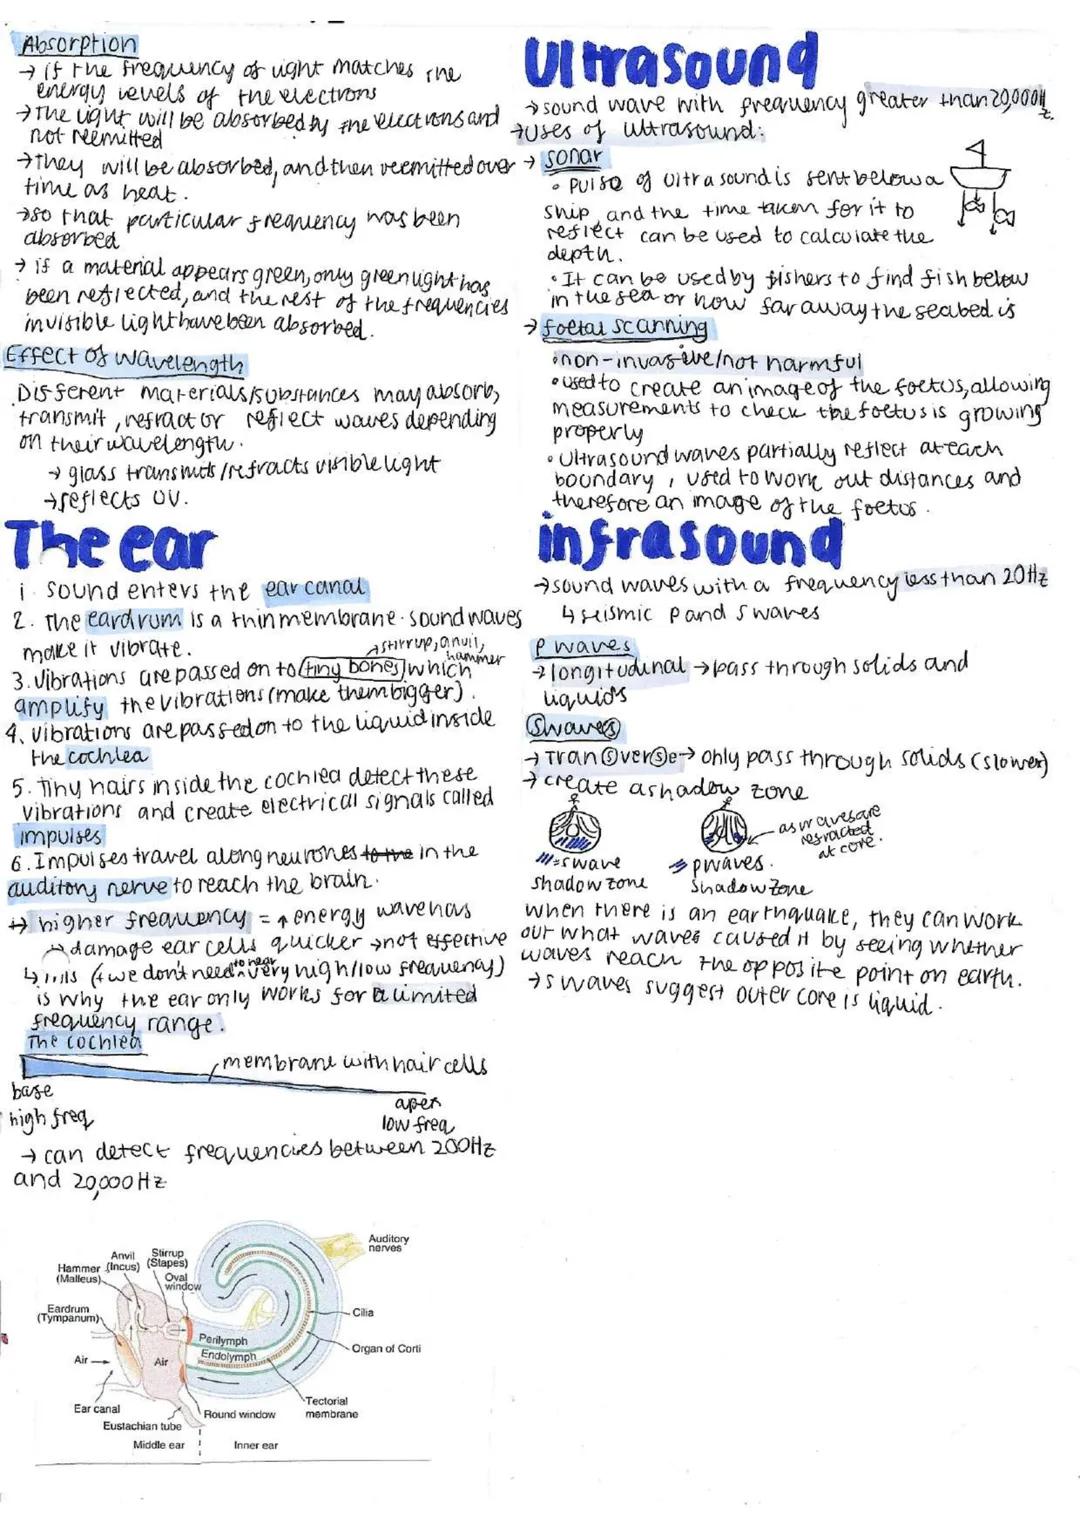 Absorption
→ if the frequency of light matches the
energy levels of the electrons
→ The light will be absorbed by the electrons and
not reemitted
→ They will be absorbed, and then reemitted over
time as heat.
→ so that particular frequency has been
absorbed
→ if a material appears green, only green light has
been reflected, and the rest of the frequencies
in visible light have been absorbed.
Effect of wavelength
Different materials/substances may absorb,
transmit, refract or reflect waves depending
on their wavelength.
→ glass transmits/refracts visible light
→ reflects UV.
The ear
1. Sound enters the ear canal
2. The eardrum is a thin membrane. sound waves
make it vibrate.
stirrup, anvil,
hammer
3. Vibrations are passed on to tiny bones which
amplify the vibrations (make them bigger).
4. Vibrations are passed on to the liquid inside
the cochlea
5. Tiny hairs inside the cochlea detect these
vibrations and create electrical signals called
impulses
6. Impulses travel along neurones to the in the
auditory nerve to reach the brain.
↔ higher frequency = ↑ energy wave has
damage ear cells quicker → not effective
↳ this (+ we don't need to hear very high/low frequency)
is why the ear only works for a limited
frequency range.
The cochlea
membrane with hair cells
base
high freq
apex
low freq
→ can detect frequencies between 200Hz
and 20,000Hz
Auditory
nerves
Anvil
(Incus)
Stirrup
(Stapes)
Hammer
(Malleus)
Oval
window
Eardrum
(Tympanum)
Cilia
Perilymph
Endolymph
Organ of Corti
Air
Air
Tectorial
membrane
Ear canal
Round window
Eustachian tube
Middle ear
Inner ear
Ultrasound
→ sound wave with frequency greater than 20,000Hz.
→ Uses of ultrasound:
→ sonar
• Pulse of ultrasound is sent below a
ship, and the time taken for it to
reflect can be used to calculate the
depth.
• It can be used by fishers to find fish below
in the sea or how far away the seabed is
→ foetal scanning
• non-invasive/not harmful
• used to create an image of the foetus, allowing
measurements to check the foetus is growing
properly
• Ultrasound waves partially reflect at each
boundary, used to work out distances and
therefore an image of the foetus.
infrasound
→ sound waves with a frequency less than 20Hz
↳ seismic P and S waves
P waves
→ longitudunal → pass through solids and
liquids
S waves
→ Tran S ver S e → only pass through solids (slower)
→ create a shadow zone
as waves are
refracted
at core.
= s wave
shadow zone
p waves.
Shadow Zone
when there is an earthquake, they can work
out what waves caused it by seeing whether
waves reach the opposite point on earth.
→ s waves suggest outer core is liquid.